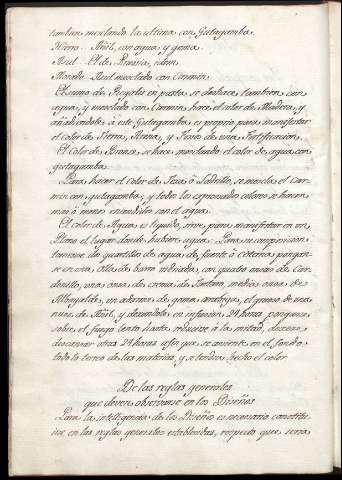 tambien mezclando la ultima con Gutagamba
Hierro - Añil, con agua y goma
Azul - El de Prusia, idem
Morado - Azul mezclado con Carmin
El zumo de Regaliz en pasta se deshace tambien con
agua, y mezclado con Carmin hace el color de Madera, y
añadiendole à esté Gutagamba es propio para manifestar
el color de tierra, Arena, y Texos de una Fortificacion.
El color de Bronce, se hace mezclando el color de agua con
gutagamba.
Para hacer el color de Texa ò Ladrillo, se mezcla el Car-
min con gutagamba; y todos los expresados colores se hacen
mas ò menos encendidos con el agua.
El color de Aguas es liquido, sirve para manifestar en un
Plano el lugar donde hubiere agua: Para su composicion
tomense dos quartillos de agua de fuente ò cisterna, pongan-
se en una Olla de barro vidriada, con quatro onzas de Car-
denillo, una onza de crema de Tartaro, media onza de
Albayalde, un adarme de goma arabiga, el grueso de una
nuez de Añil, y dexandolo en infusion 24 horas pongase
sobre el fuego lento hasta reducirse à la mitad, dexese
descansar otras 24 horas afin que se asiente en el fondo
todo lo terreo de las materias, y se tendra hecho el color
De las reglas generales
que deven observarse en los Diseños
Para la inteligencia de los Diseños es necesario constituir-
se en las reglas generales establecidas, respecto que seria